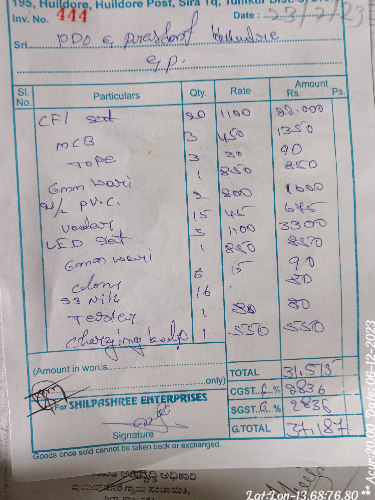 195, Huildore, Huildore Post, Sira Tq, Tumkur Dist.
Inv. No. 444 Date : 23/2/23
Sri PDO G
G.P.
Sl. No. Particulars Qty. Rate Amount Rs. Ps.
CFl set 20 1100 22.000
MCB 3 450 1350
Tope 3 30 90
1 850 850
Gmm wari 2 800 1600
2 1/2 PV.C. 15 45 675
3 1100 3300
LED set 1 850 850
Gmm wari 6 15 90
16 80
Tester 1 80 80
Charging bulb 1 550 550
(Amount in words
only)
TOTAL 31.515
CGST. % 2836
SGST. % 2836
G.TOTAL 37.187
For SHILPASHREE ENTERPRISES
Signature
Goods once sold cannot be taken back or exchanged.
Lat:Lon-13.68:76.80 ** Acu=20.00 Date:06-12-2023